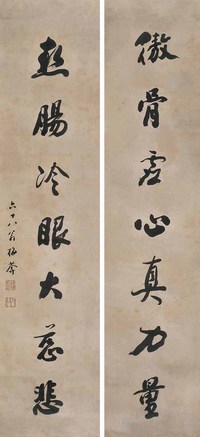 傲骨虚心真力量
热肠冷眼大慈悲
六十八翁